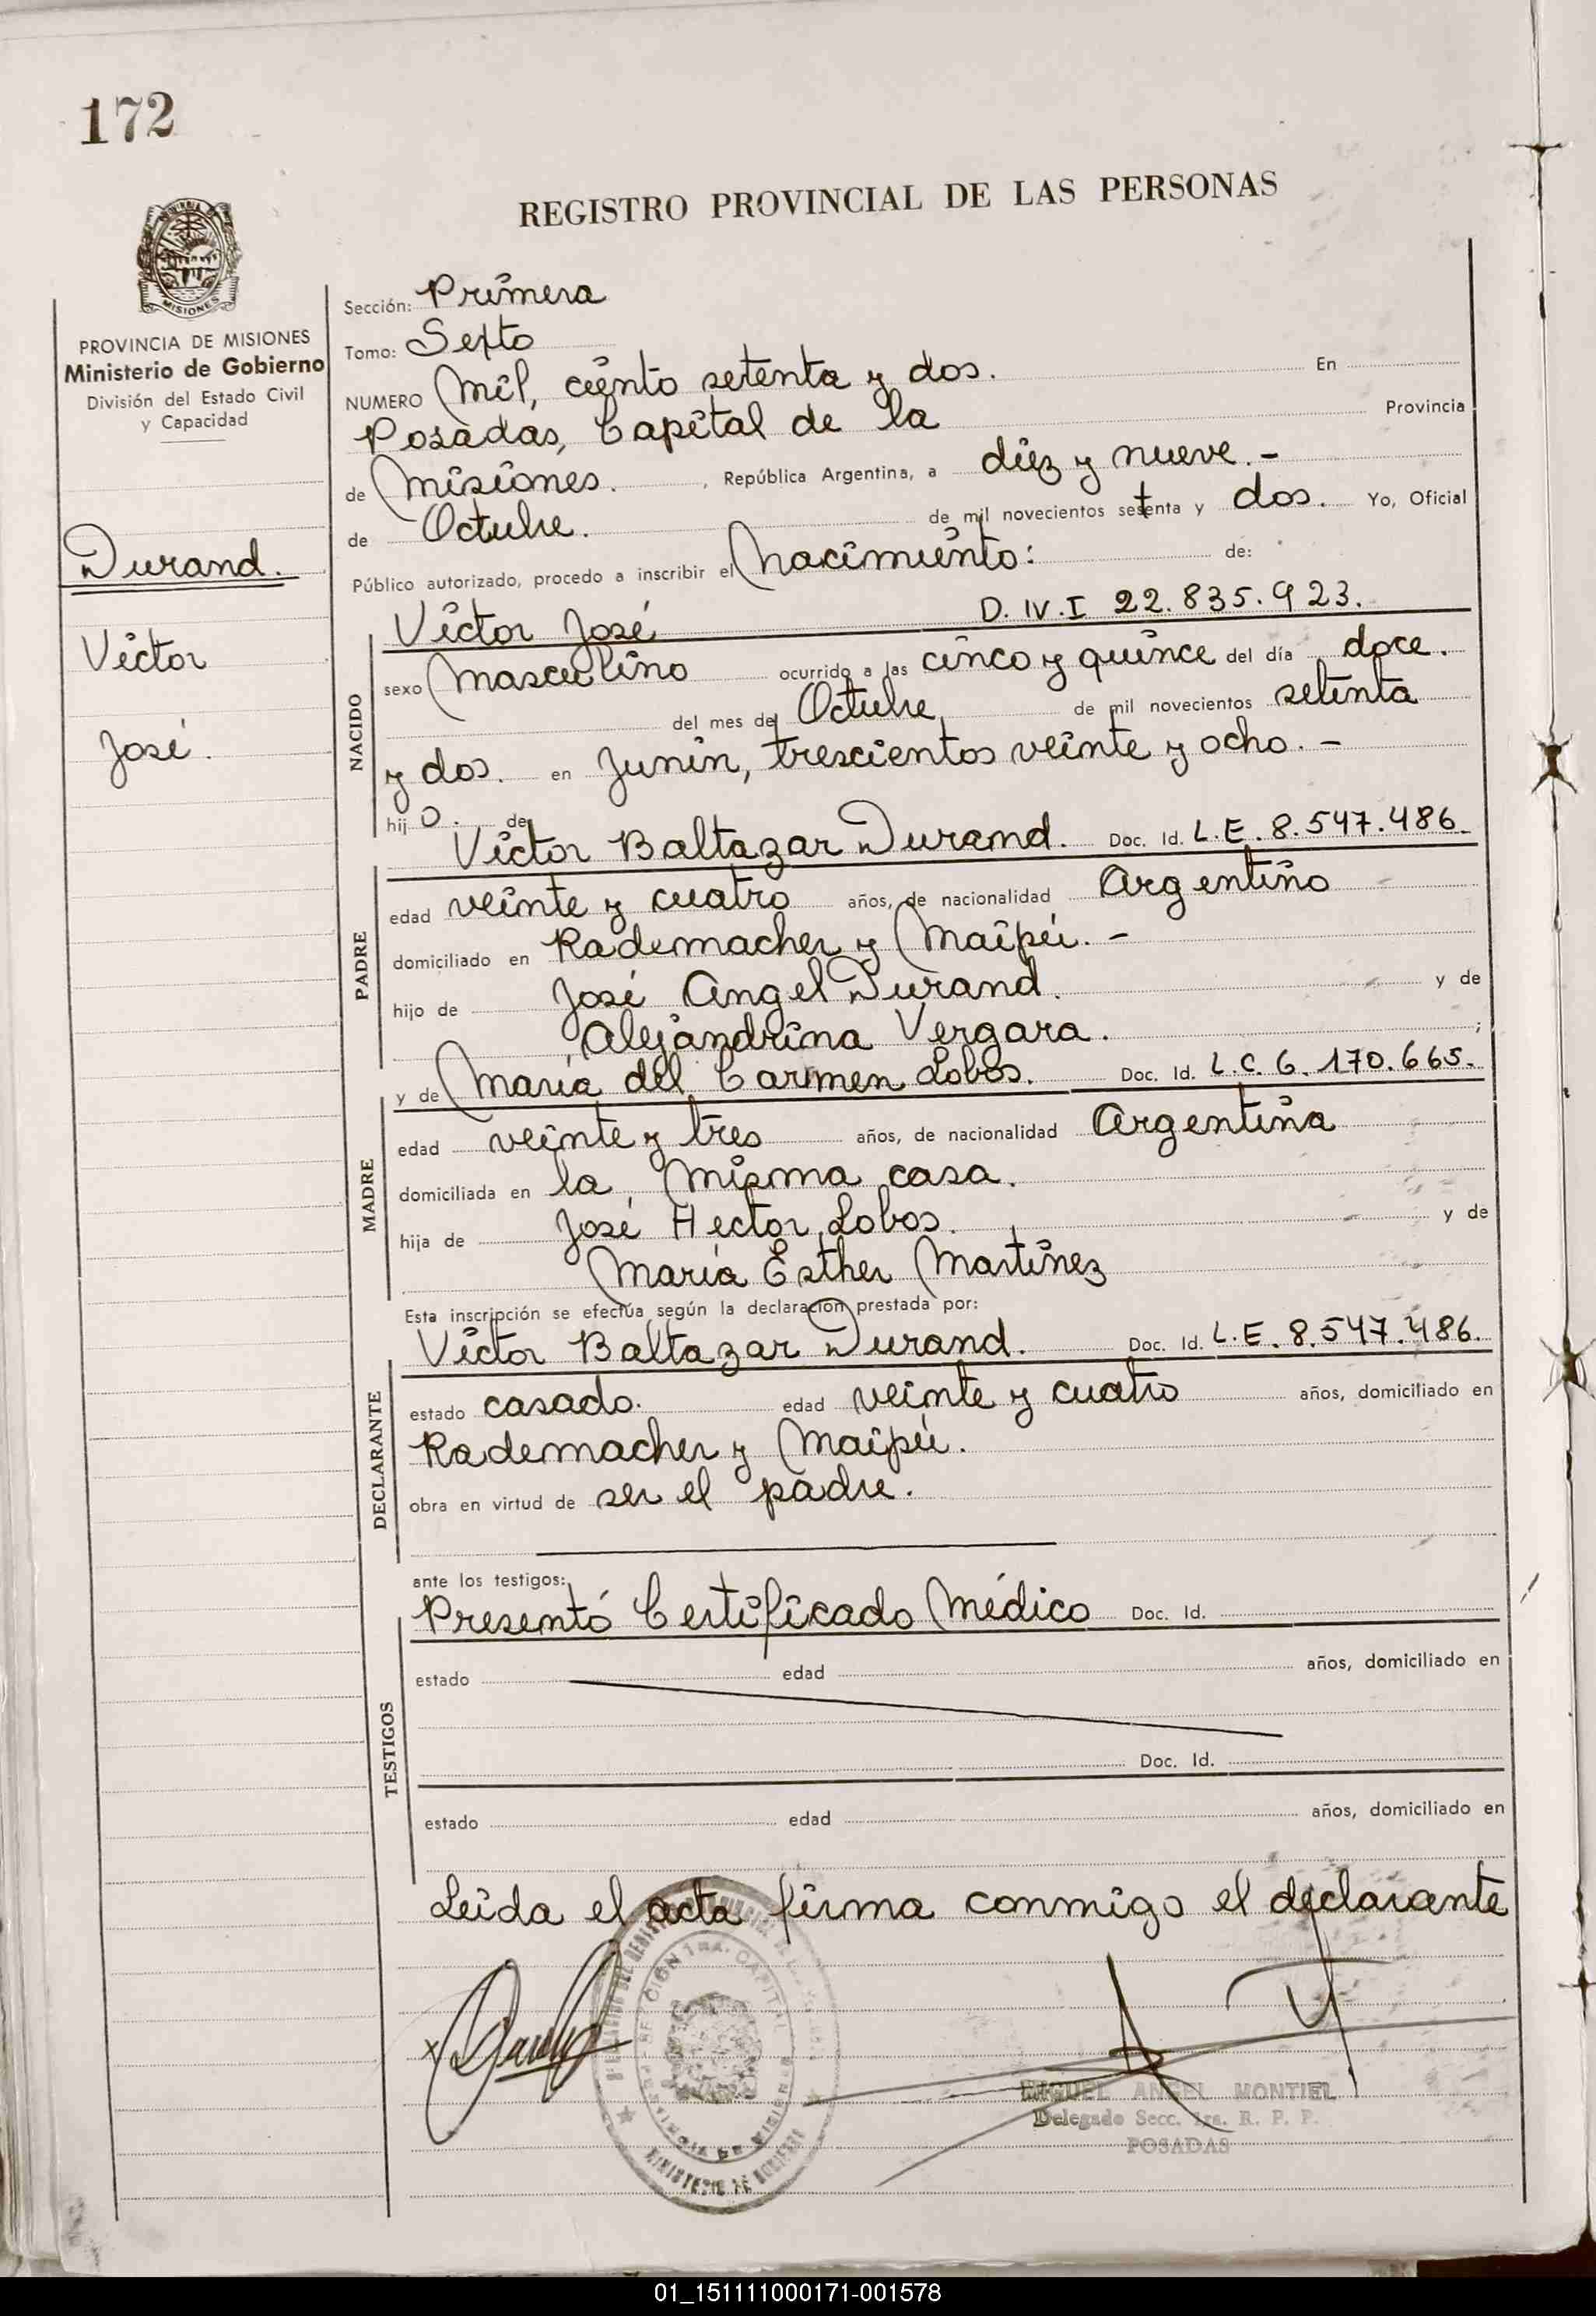 172
REGISTRO PROVINCIAL DE LAS PERSONAS
MISIONES
PROVINCIA DE MISIONES
Ministerio de Gobierno
División del Estado Civil
y Capacidad
Durand.
Víctor
José.
Sección: Primera
Tomo: Sexto
NUMERO Mil, ciento setenta y dos. En
Posadas, Capital de la Provincia
de Misiones. , República Argentina, a diez y nueve.-
de Octubre. de mil novecientos setenta y dos. Yo, Oficial
Público autorizado, procedo a inscribir el Nacimiento: de:
Víctor José D. IV. I 22.835.923.
NACIDO
sexo Masculino ocurrido a las cinco y quince del día doce.
del mes de Octubre de mil novecientos setenta
y dos. en Junín, trescientos veinte y ocho.-
hij o. de
Víctor Baltazar Durand. Doc. Id. L.E. 8.547.486.
PADRE
edad veinte y cuatro años, de nacionalidad Argentino
domiciliado en Rademacher y Maipú.-
hijo de José Angel Durand. y de
Alejandrina Vergara. ;
y de María del Carmen Lobos. Doc. Id. L.C. 6.170.665.
MADRE
edad veinte y tres años, de nacionalidad Argentina
domiciliada en la misma casa.
hija de José Hector Lobos. y de
María Esther Martínez
Esta inscripción se efectúa según la declaración prestada por:
Víctor Baltazar Durand. Doc. Id. L.E. 8.547.486.
DECLARANTE
estado casado. edad veinte y cuatro años, domiciliado en
Rademacher y Maipú.
obra en virtud de ser el padre.
ante los testigos:
Presentó Certificado Médico Doc. Id.
TESTIGOS
estado edad años, domiciliado en
Doc. Id.
estado edad años, domiciliado en
Leída el acta firma conmigo el declarante
SECCIÓN 1RA. CAPITAL
MINISTERIO DE GOBIERNO
MIGUEL ANGEL MONTIEL
Delegado Secc. 1ra. R. P. P.
POSADAS
01_151111000171-001578